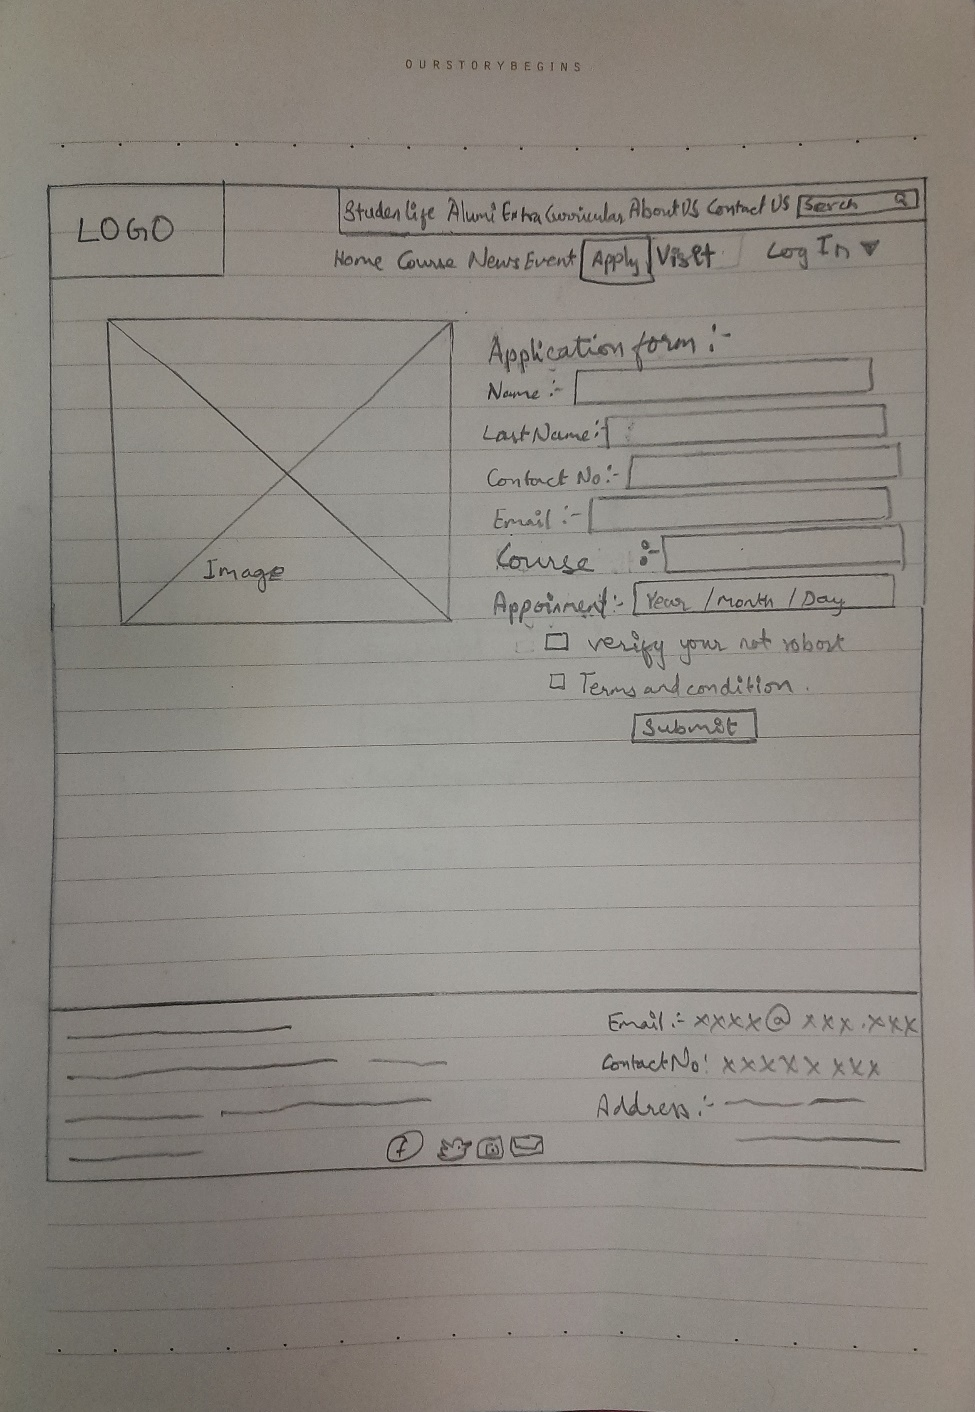 OURSTORYBEGINS
LOGO
Studen life Alumi Extra Curricular About US Contact US Serch
Home Course News Event Apply Visit Log In ▼
Application form :-
Name :-
Last Name :-
Contact No :-
Email :-
Course :-
Appoinment :- Year / Month / Day
Image
verify your not robort
Terms and condition .
Submit
Email :- xxxx@ xxx .xxx
Contact No : xxxxx xxx
Address :-
f